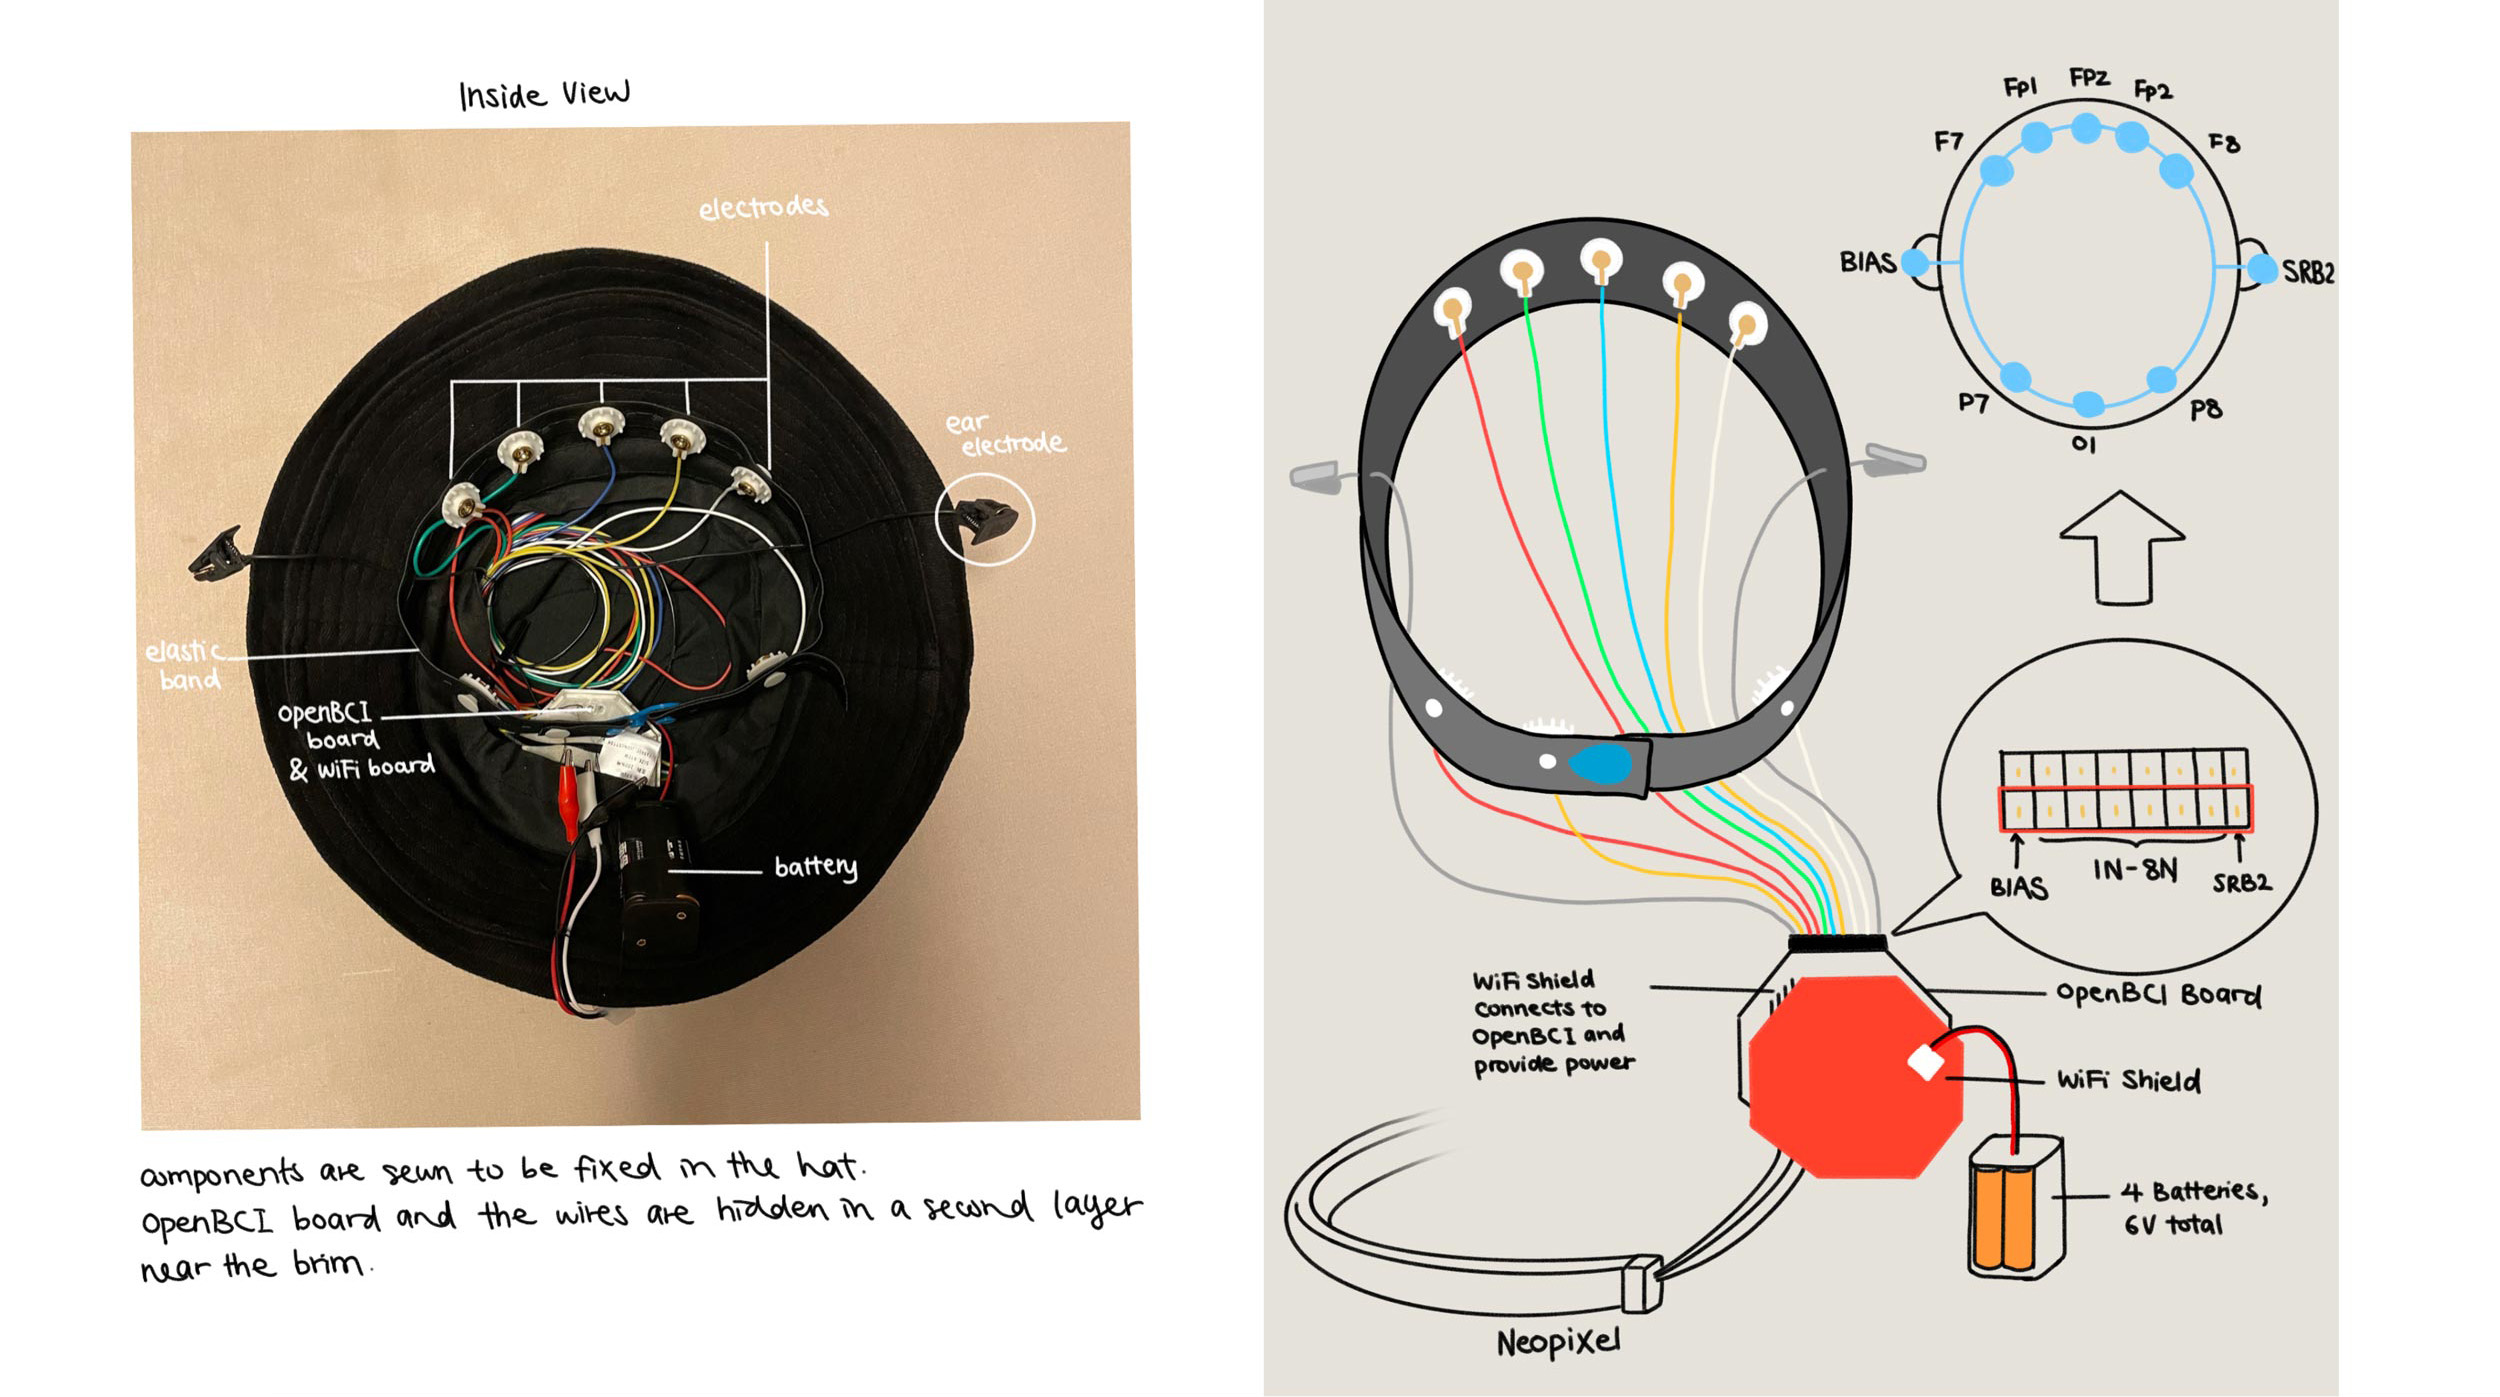 Inside View
electrodes
ear
electrode
elastic
band
openBCI
board
& wiFi board
battery
components are sewn to be fixed in the hat.
OpenBCI board and the wires are hidden in a second layer
near the brim.
Fp1
FPZ
Fp2
F7
F8
BIAS
SRB2
P7
P8
O1
BIAS
IN-8N
SRB2
WiFi Shield
connects to
OpenBCI and
provide power
OpenBCI Board
WiFi Shield
4 Batteries,
6V total
Neopixel